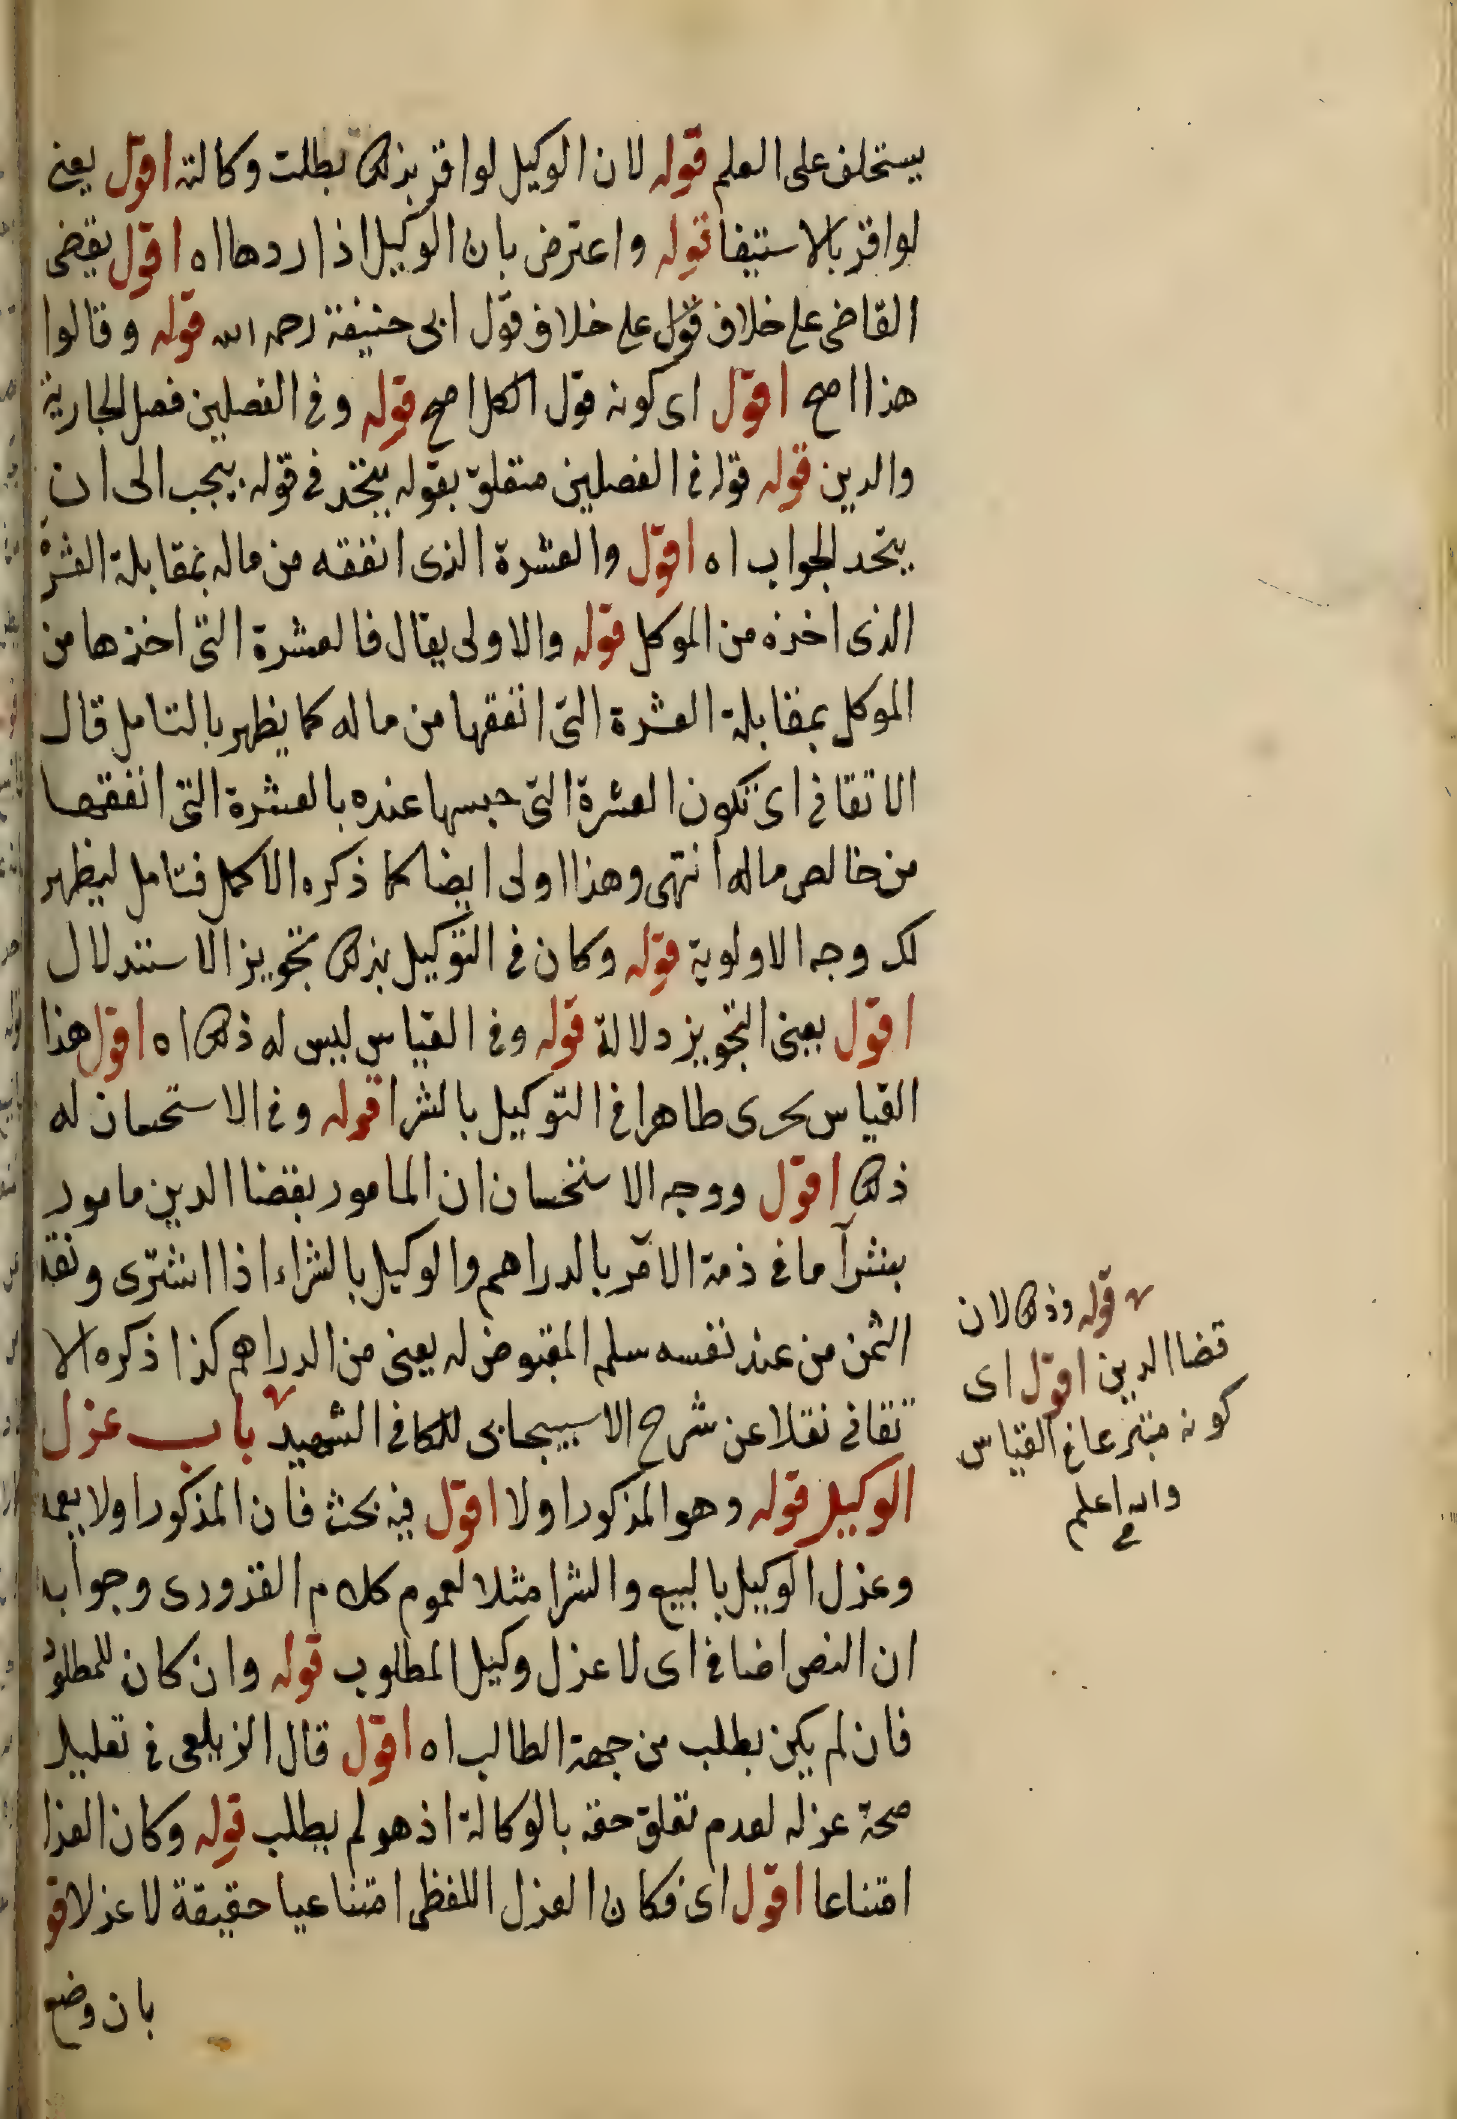 يستحلف على العلم قوله لان الوكيل لو اقر بذلك بطلت وكالته اقول يعني
لو اقر بالاستيفا قوله واعترض بان الوكيل اذا ردها اه اقول يقضي
القاضي على خلاف قول على خلاف قول ابي حنيفة رحمه الله قوله وقالوا
هذا اصح اقول اى كونه قول الكل اصح قوله وفي الفصلين فصل الجارية
والدين قوله قوله في الفصلين متعلق بقوله يتخذ في قوله يجب الى ان
يتحد الجواب اه اقول والعشرة الذى انفقه من ماله بمقابلة العشرة
الذى اخذه من الموكل قوله والاولى يقال فالعشرة التى اخذها من
الموكل بمقابلة العشرة التى انفقها من ماله كما يظهر بالتامل قال
الاتقاني اى تكون العشرة التى حبسها عنده بالعشرة التى انفقها
من خالص ماله انتهى وهذا اولى ايضا كما ذكره الاكمل فتامل ليظهر
لك وجه الاولوية قوله وكان في التوكيل بذلك تجويز الاستدلال
اقول يعنى التجويز دلالة قوله وفي القياس ليس له ذلك اه اقول هذا
القياس يجرى ظاهرا في التوكيل بالشرا قوله وفي الاستحسان له
ذلك اقول ووجه الاستحسان ان المامور بقضا الدين مامور
بشرآ ما في ذمة الامر بالدراهم والوكيل بالشراء اذا اشترى ونقد
الثمن من عند نفسه سلم المقبوض له يعنى من الدراهم كذا ذكره الا
تقاني نقلا عن شرح الاسبيجابى للكافي الشهيد باب عزل
الوكيل قوله وهو المذكور اولا اقول فيه بحث فان المذكور اولا يعمه
وعزل الوكيل بالبيع والشرا مثلا لعموم كلام القدورى وجوابه
ان النص اضافي اى لا عزل وكيل المطلوب قوله وان كان للمطلوب
فان لم يكن بطلب من جهة الطالب اه اقول قال الزيلعى في تعليل
صحة عزله لعدم تعلق حقه بالوكالة اذ هو لم يطلب قوله وكان العزل
امتناعا اقول اى فكان العزل اللفظى امتناعيا حقيقة لا عزلا قو
بان وضع
قوله وذلك لان
قضا الدين اقول اى
كونه متبرعا في القياس
والله اعلم